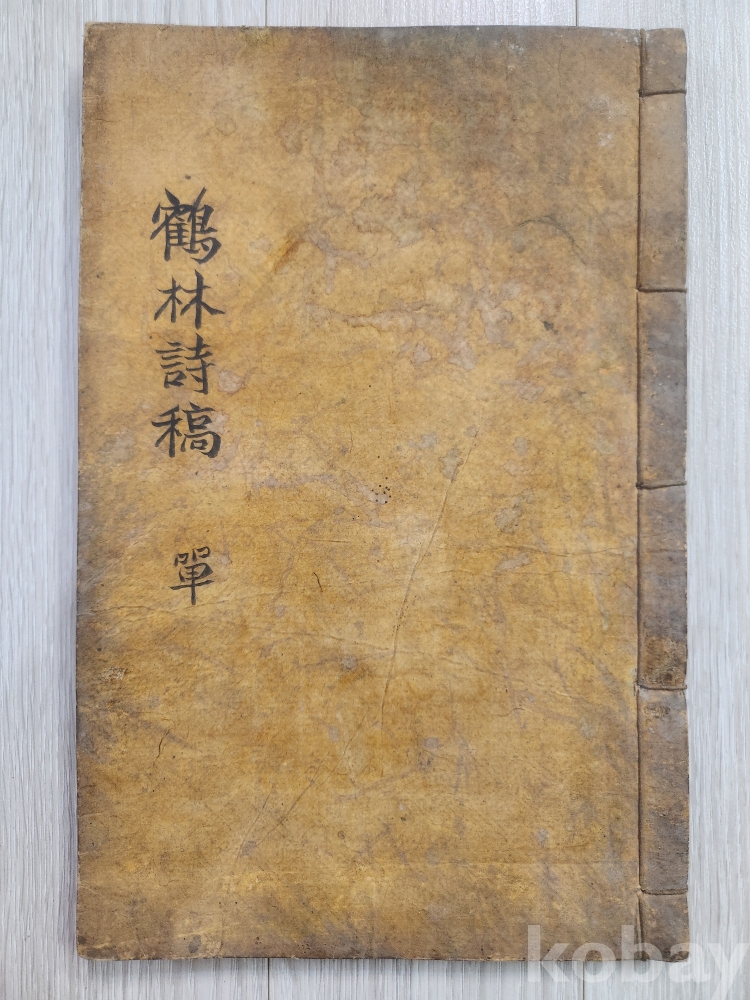 鶴林詩稿 單
kobay